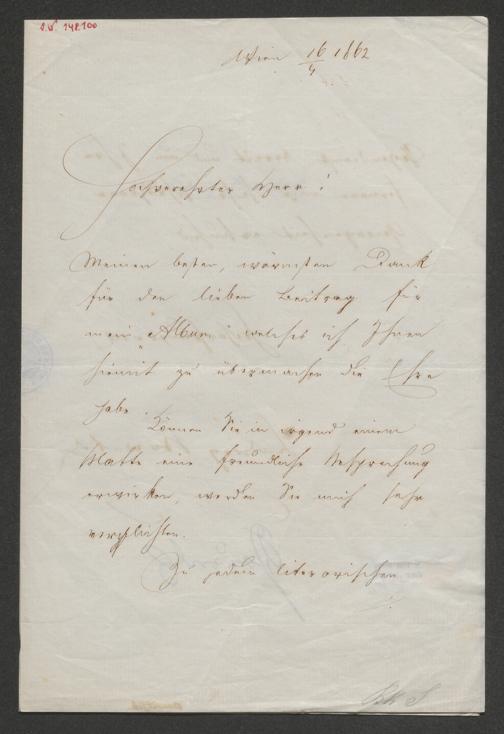 I.N. 148.100
Wien 16/4 1862
Hochverehrter Herr!
Meinen besten, wärmsten Dank
für den lieben Beitrag für
mein Album, welches ich Ihnen
hiemit zu übermachen die Ehre
habe. Können Sie in irgend einem
Blatte eine freundliche Besprechung
erwirken, werden Sie mich sehr
verpflichten.
Zu jedem literarischen